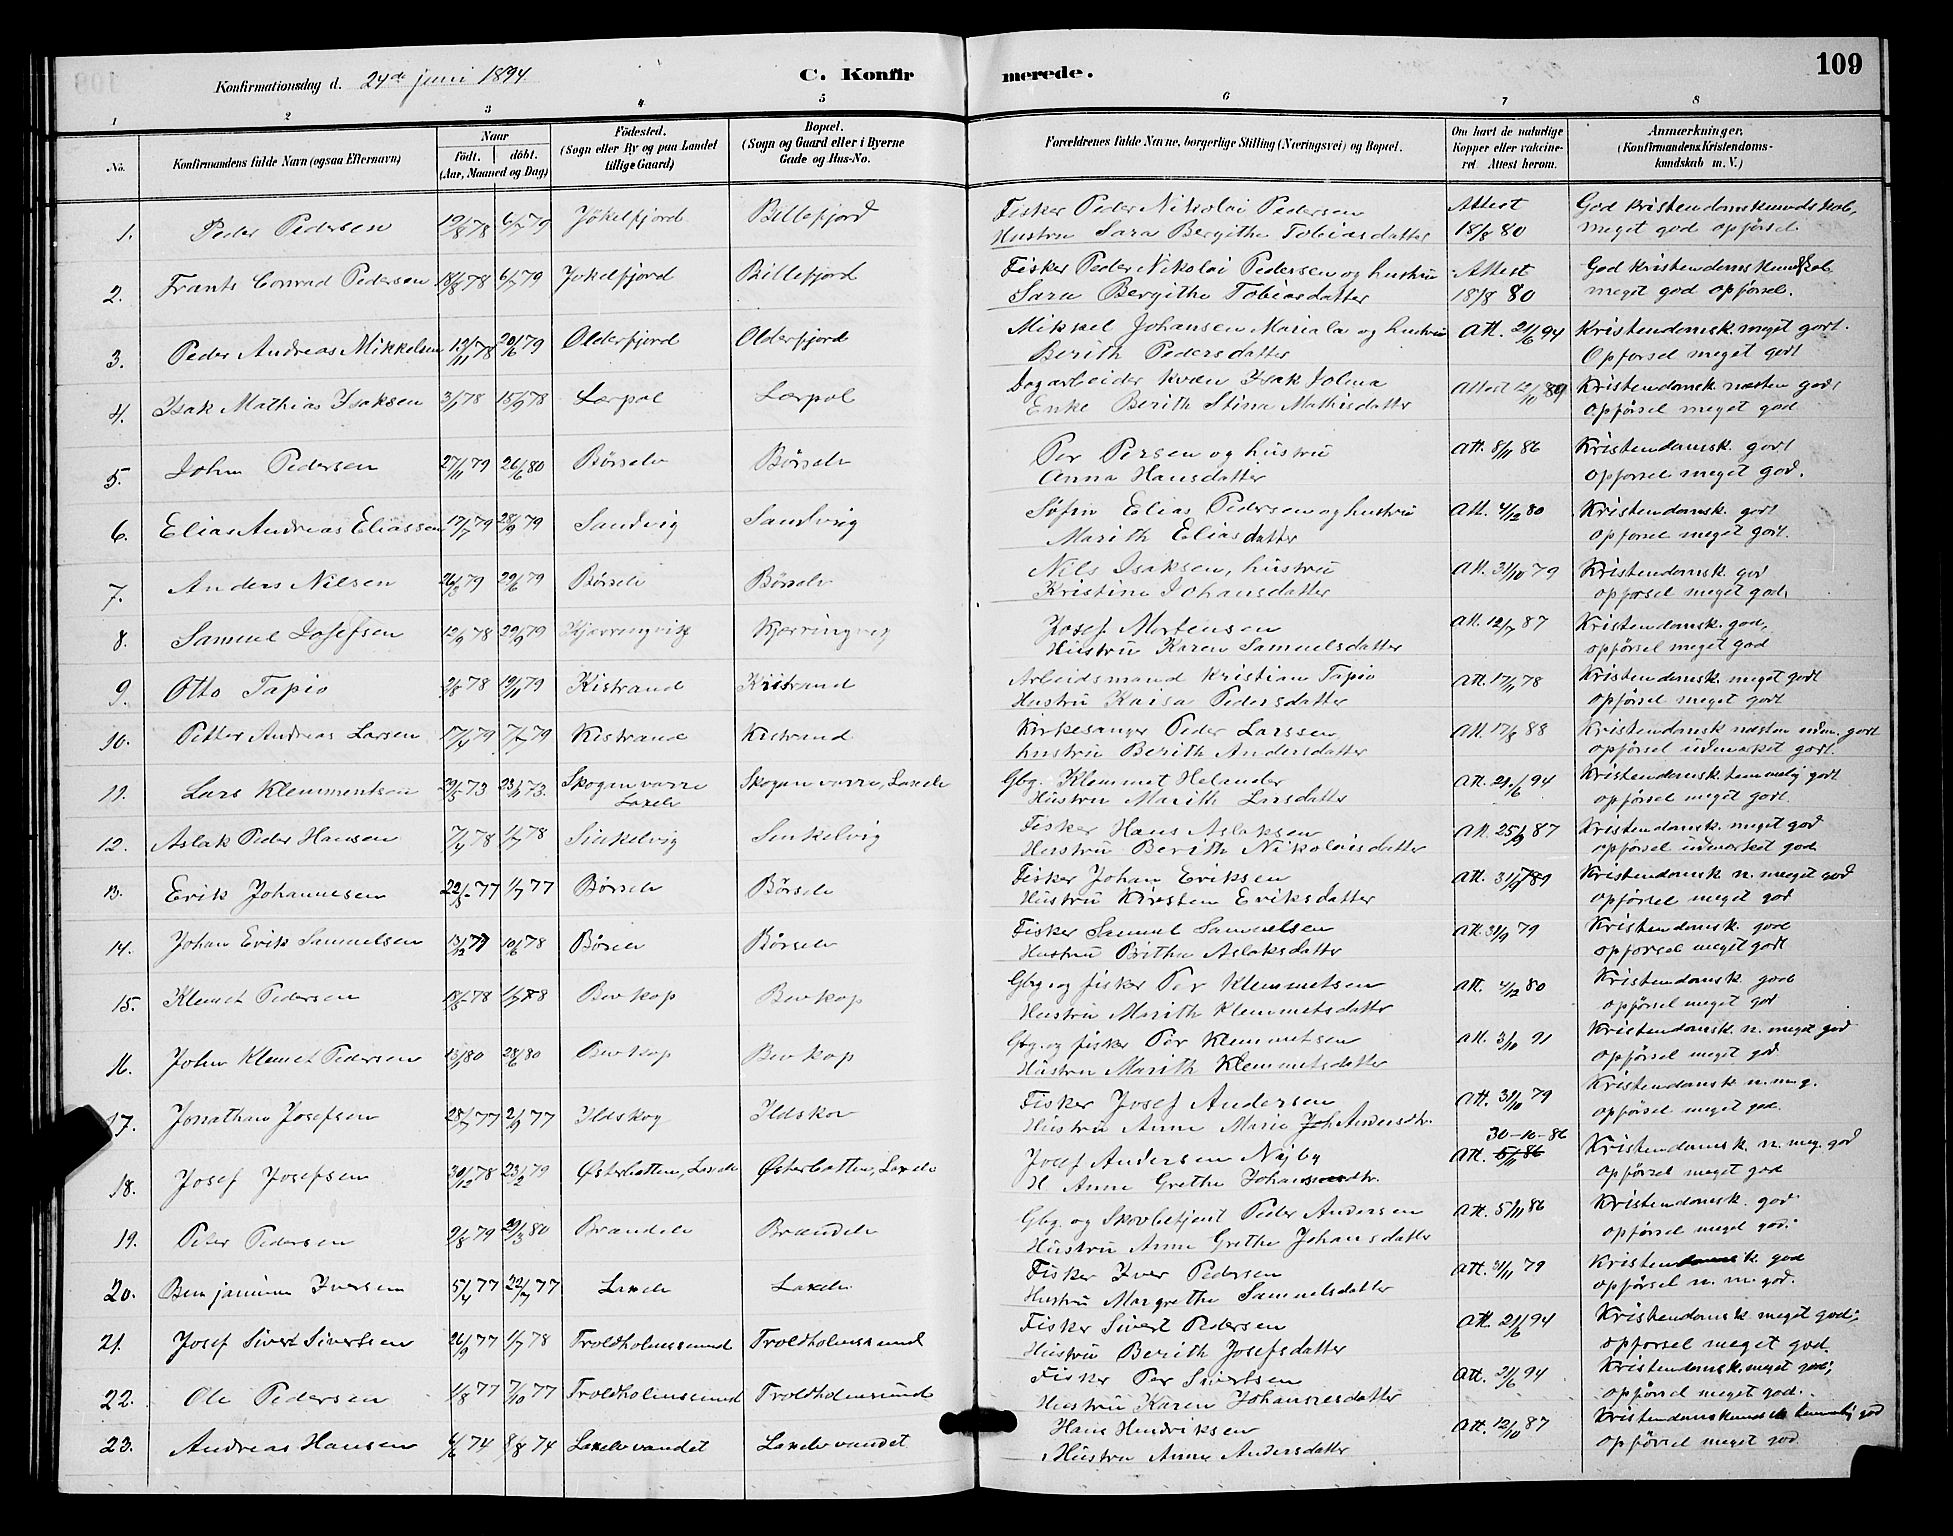 109
Konfirmationsdag d. 24de juni 1894
C. Konfirmerede.
1 2 3 4 5 6 7 8
No. Konfirmandens fulde Navn (ogsaa Efternavn) Naar född. döbt. (Aar, Maaned og Dag) Födested. (Sogn eller By og paa Landet tillige Gaard) Bopæl. (Sogn og Gaard eller i Byerne Gade og Hus-No. Forældrenes fulde Navne, borgerlige Stilling (Næringsvei) og Bopæl. Om havt de naturlige Kopper eller vakcineret. Attest herom. Anmærkninger, (Konfirmandens Kristendomskundskab m. V.)
1. Peder Pedersen 12/8 78 6/7 79 Jökelfjord Billefjord Fisker Peder Nikolai Pedersen Attest God kristendomskundskab,
Hustru Sara Bergithe Tobiasdatter 18/8 80 meget god opförsel.
2. Frants Conrad Pedersen 18/8 78 6/7 79 Jokelfjord Billefjord Fisker Peder Nikolai Pedersen og hustru Attest God kristendomskundskab
Sara Bergithe Tobiasdatter 18/8 80 meget god opförsel.
3. Peder Andreas Mikkelsen 12/11 78 20/6 79 Olderfjord Olderfjord Mikkel Johansen og hustru Att. 21/6 94 Kristendomsk. meget godt.
Berith Pedersdatter Opförsel meget godt
4. Isak Mathias Isaksen 3/7 78 15/9 78 Lærpol Lærpol Dagarbeider kvæn Isak Attest 12/11 89 Kristendomsk næsten godt
Enke Berith Stina Mathisdatter opförsel meget god
5. John Pedersen 27/11 79 26/6 80 Börselv Börselv Per Persen og hustru Att. 8/11 86 Kristendomsk. godt
Anna Hansdatter opförsel meget god.
6. Elias Andreas Eliassen 17/7 79 28/9 79 Sandvig Sandvig Elias Pedersen og hustru Att. 4/12 80 Kristendomsk. godt
Marith Eliasdatter opförsel meget godt.
7. Anders Nilsen 26/3 79 29/6 79 Börselv Börselv Nils Isaksen, hustru Att. 31/10 79 Kristendomsk. god
Kristine Johansdatter opförsel meget god.
8. Samuel Josefsen 12/9 78 29/9 79 Kjærringvig Kjærringvig Josef Mortensen Att. 12/7 87 Kristendomsk. god,
Hustru Karen Samuelsdatter opförsel meget god
9. Otto Tapio 2/8 78 19/11 79 Kistrand Kistrand Arbeidsmand Kristian Tapio Att. 17/11 78 Kristendomsk. meget godt
Hustru Kaisa Pedersdatter opförsel meget godt
10. Petter Andreas Larsen 17/4 79 7/7 79 Kistrand Kistrand Kirkesanger Peder Larssen Att. 17/8 88 Kristendomsk næsten udm. godt
hustru Berith Andersdatter opförsel udmærket godt.
11. Lars Klemmentsen 29/5 73 23/11 73. Skoganvarre Laxelv Skoganvarre, Laxelv Gbg. Klemmet Helander Att. 21/6 94 Kristendomsk. temmelig godt
Hustru Marith Larsdatter opförsel meget godt.
12. Aslak Peder Hansen 7/4 78 1/7 78 Sinkelvig Sinkelvig Fisker Hans Aslaksen Att. 25/9 87 Kristendomsk. meget god
Hustru Berith Nikolaisdatter opförsel udmærket god
13. Erik Johannesen 22/5 77 1/7 77 Börselv Börselv Fisker Johan Eriksen Att. 31/10 89 Kristendomsk n. meget god
Hustru Kirsten Eriksdatter opförsel meget god
14. Johan Erik Samuelsen 13/12 77 10/6 78 Börselv Börselv Fisker Samuel Samuelsen Att. 31/7 79 Kristendomsk. god
Hustru Britha Aslaksdatter opförsel meget godt
15. Klemet Pedersen 18/5 78 1/7 78 Bevkop Bevkop Gbg. og fisker Per Klemmetsen Att. 4/12 80 Kristendomsk. god
Hustru Marith Klemmetsdatter opförsel meget god
16. John Klemet Pedersen 13/1 80 28/6 80 Bevkop Bevkop Gbg. og fisker Per Klemmetsen Att. 3/11 91 Kristendomsk. n. meget god
Hustru Marith Klemmetsdatter opförsel meget god
17. Jonathan Josefsen 28/7 77 2/9 77 Ildskog Ildskov Fisker Josef Andersen Att. 31/10 79 Kristendomsk. n. m. g.
Hustru Anne Marie Joh Andersdtr. opförsel meget god.
30-10-86
18. Josef Josefsen 30/12 78 23/2 79 Österbotten, Laxelv Österbotten, Laxelv Josef Andersen Nyby Att. 5/11 86 Kristendomsk. n. meg. god
H. Anne Grethe Johansdtr. opförsel meget god
19. Peter Pedersen 2/8 79 29/3 80 Brændelv Brændelv Gbg. og Skovbetjent Peder Andersen Att. 5/11 86 Kristendomsk. god
Hustru Anne Grethe Johansdatter opförsel meget god.
20. Benjamin Iversen 5/4 77 22/7 77 Laxelv Laxelv Fisker Iver Pedersen Att. 31/11 79 Kristendomsk. god
Hustru Margrethe Samuelsdatter opförsel n. m. god.
21. Josef Sivert Sivertsen 26/9 77 1/7 78 Troldholmssund Troldholmssund Fisker Sivert Pedersen Att. 21/6 94 Kristendomsk meget god;
Hustru Berith Josefsdatter opförsel meget god.
22. Ole Pedersen 1/8 77 7/10 77 Troldholmssund Troldholmsund Fisker Per Sivertsen Att. 21/6 94 Kristendomsk. meget god;
Hustru Karen Johannesdatter opförsel meget god.
23. Andreas Hansen 6/6 74 9/8 74 Laxelvvandet Laxelvvandet Hans Hendriksen Att. 12/10 87 Kristendomskundsk temmelig god
Hustru Anne Andersdatter opförsel meget god